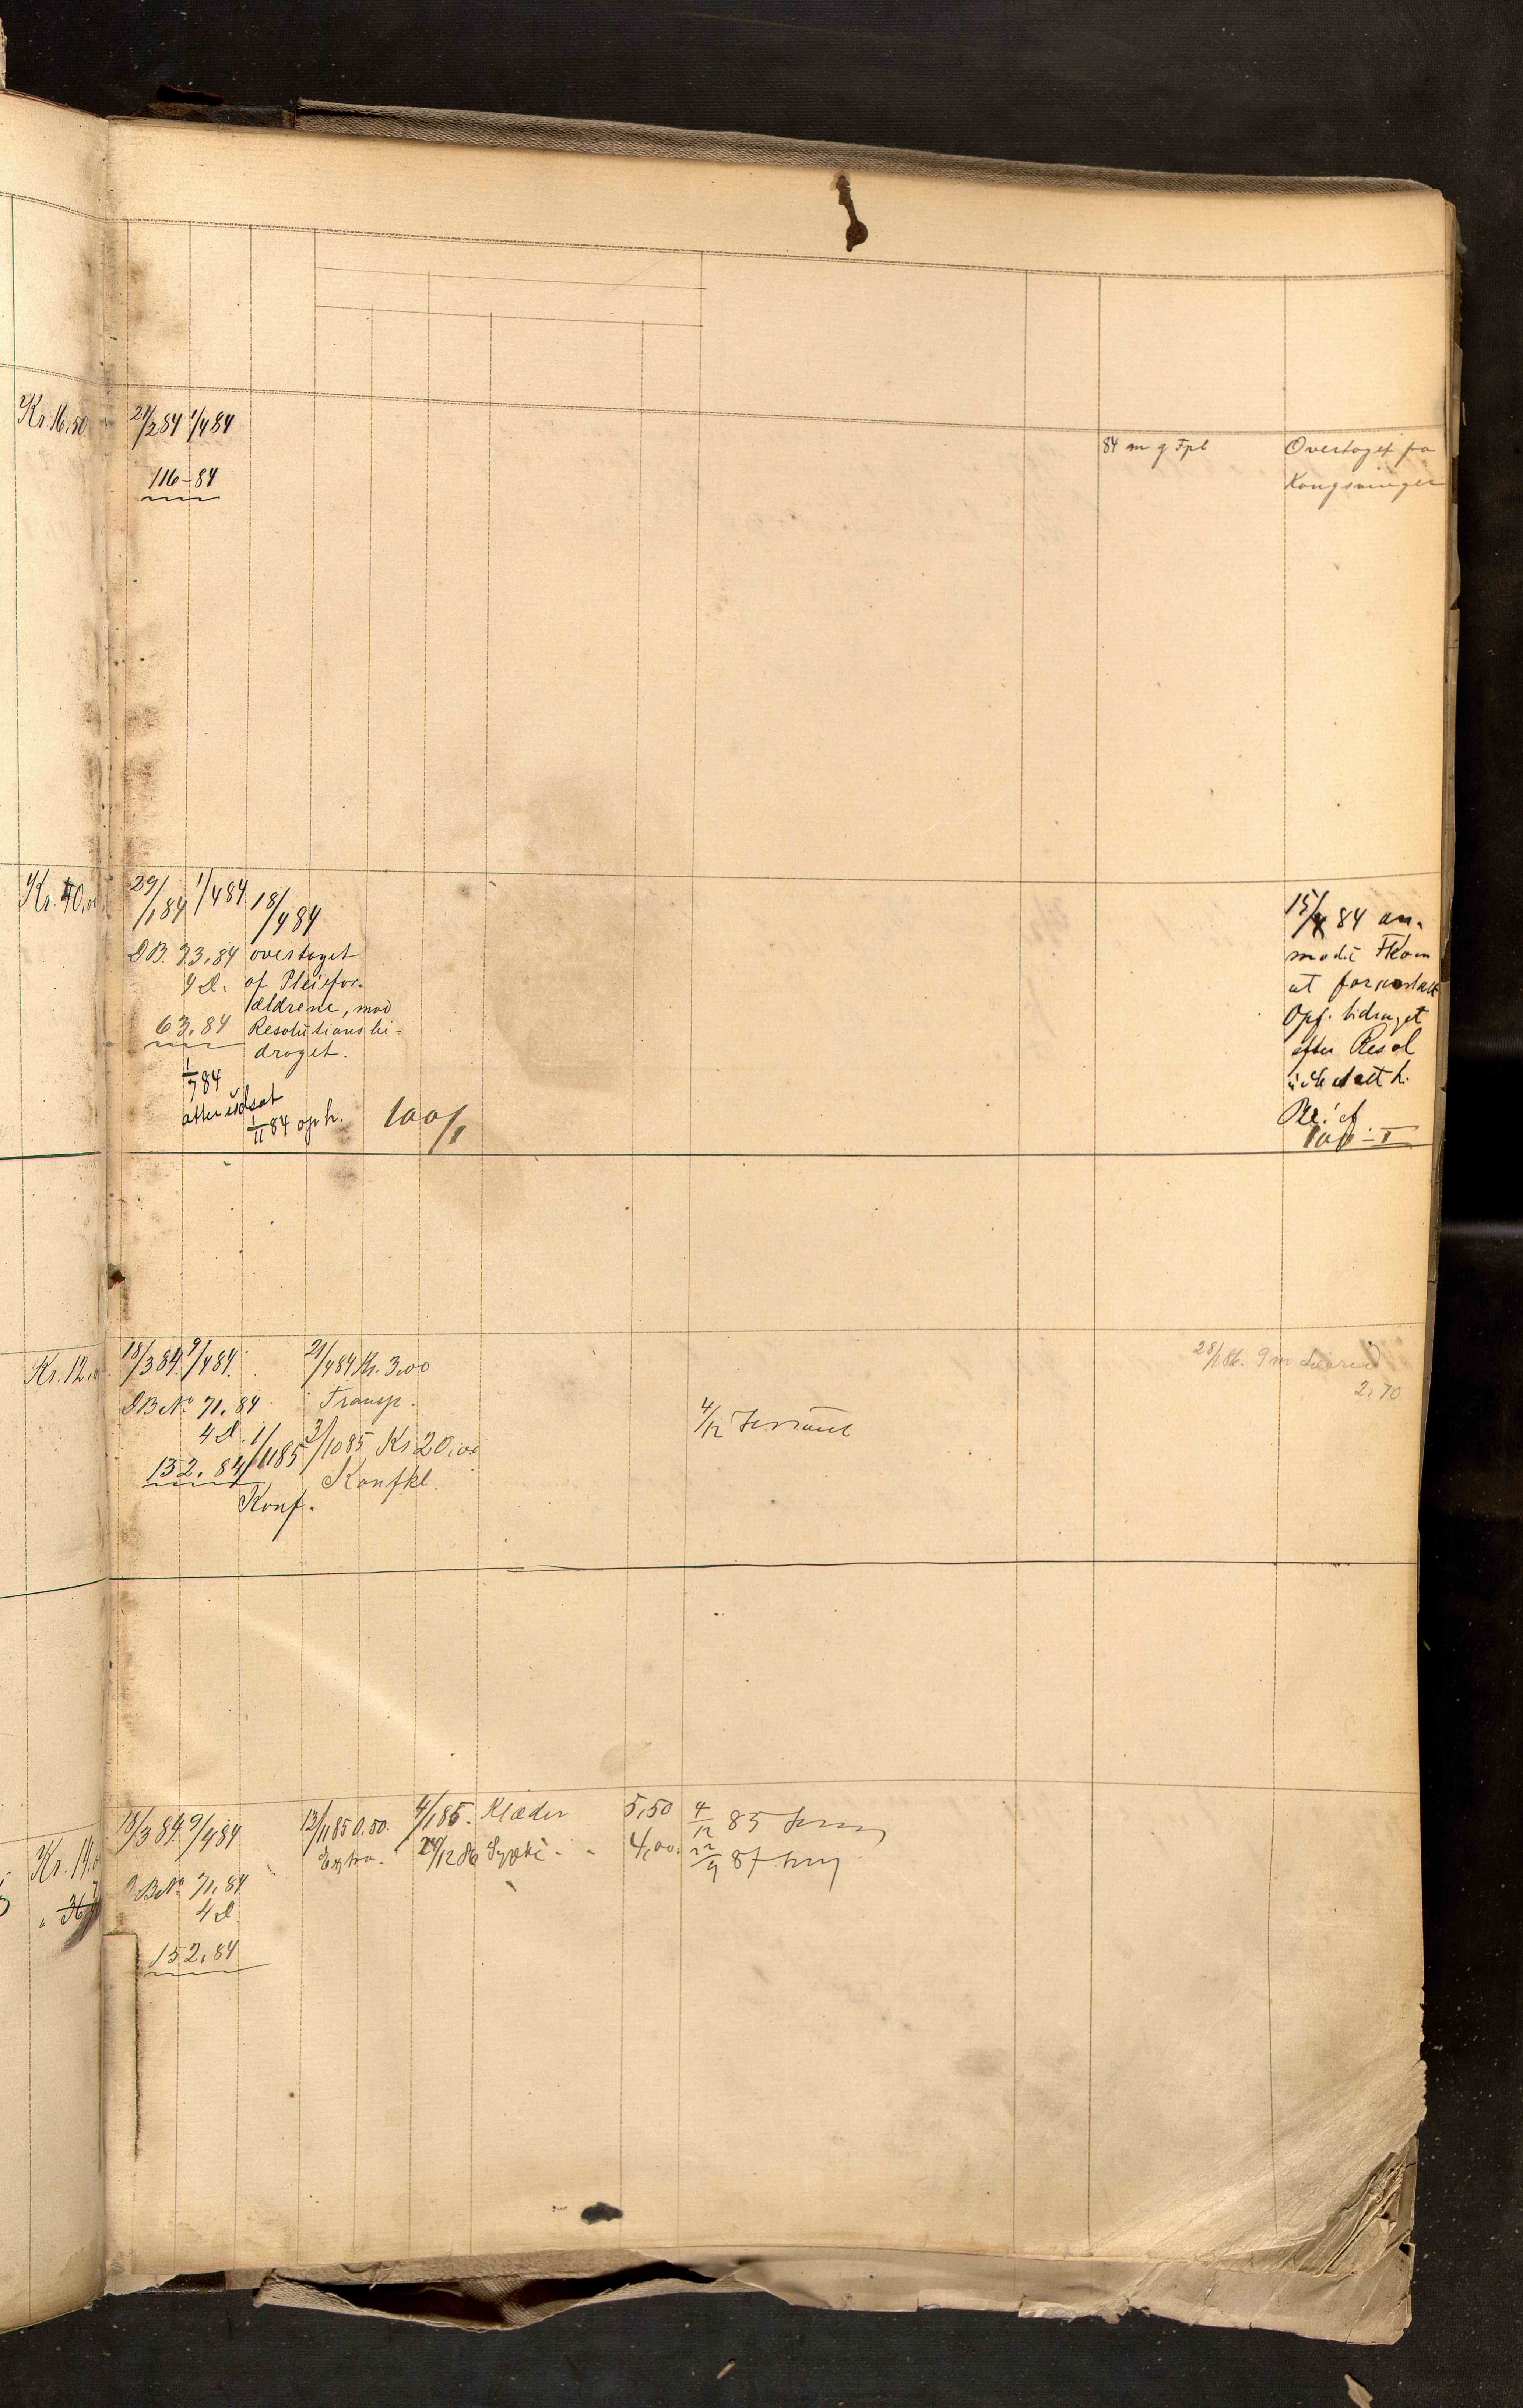 Kr. 16,50.
21/2 84 1/4 84
116-84
84 m g Fpl
Overtaget fra
Kongsvinger
Kr. 40,00
29/1 84 1/4 84 18/4 84
DB. 73.84 overtaget
4 D. af Pleiefor-
ældrene, mod
63.84 Resolutionsbi-
draget.
1/7 84
atter udsat
1/11 84 oph.
100/1
15/4 84 an-
modet FKom
at
Opf. bidraget
efter Resol
100-I
Kr. 12,00
18/3 84. 9/4 84. 21/4 84 Kr. 3,00
DB No 71.84 Transp.
4 D. 1/11 85 3/10 85 Kr 20,00
152.84 Konfkl.
Konf.
4/12
28/1 86. 9 m
2,70
Kr. 14,00
18/3 84. 9/4 84 12/11 85 0.50. 4/1 85. Klæder 5,50 4/12 85
Extra. 24/12 86 - - 4,00. 22/9 87
DB No 71.84
4 D.
152.84